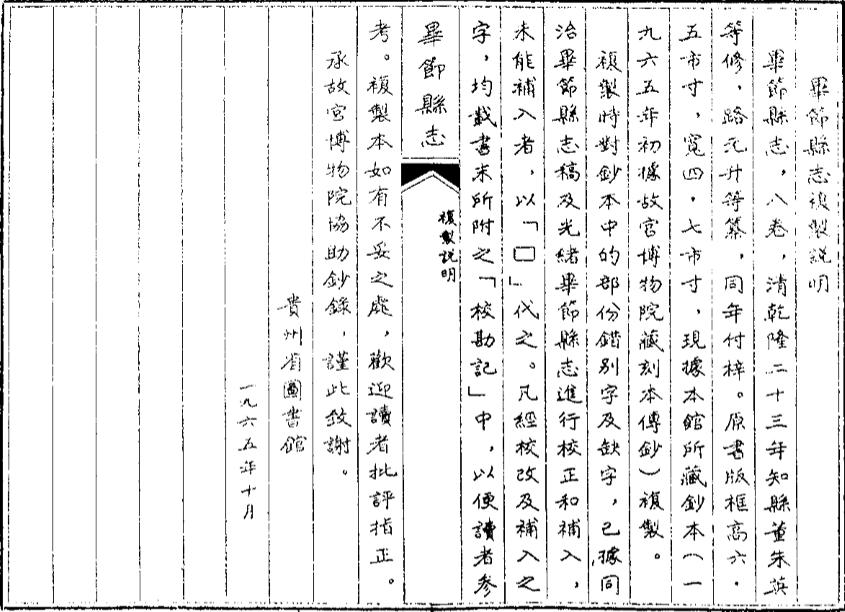 畢節縣志複製說明
畢節縣志，八卷，清乾隆二十三年知縣董朱英
等修，路元升等纂，同年付梓。原書版框高六．
五市寸，寬四．七市寸，現據本館所藏鈔本（一
九六五年初據故宮博物院藏刻本傳鈔）複製。
複製時對鈔本中的部份錯別字及缺字，已據同
治畢節縣志稿及光緒畢節縣志進行校正和補入，
未能補入者，以「□」代之。凡經校改及補入之
字，均載書末所附之「校勘記」中，以便讀者參
畢節縣志
複製說明
考。複製本如有不妥之處，歡迎讀者批評指正。
承故宮博物院協助鈔錄，謹此致謝。
貴州省圖書館
一九六五年十月